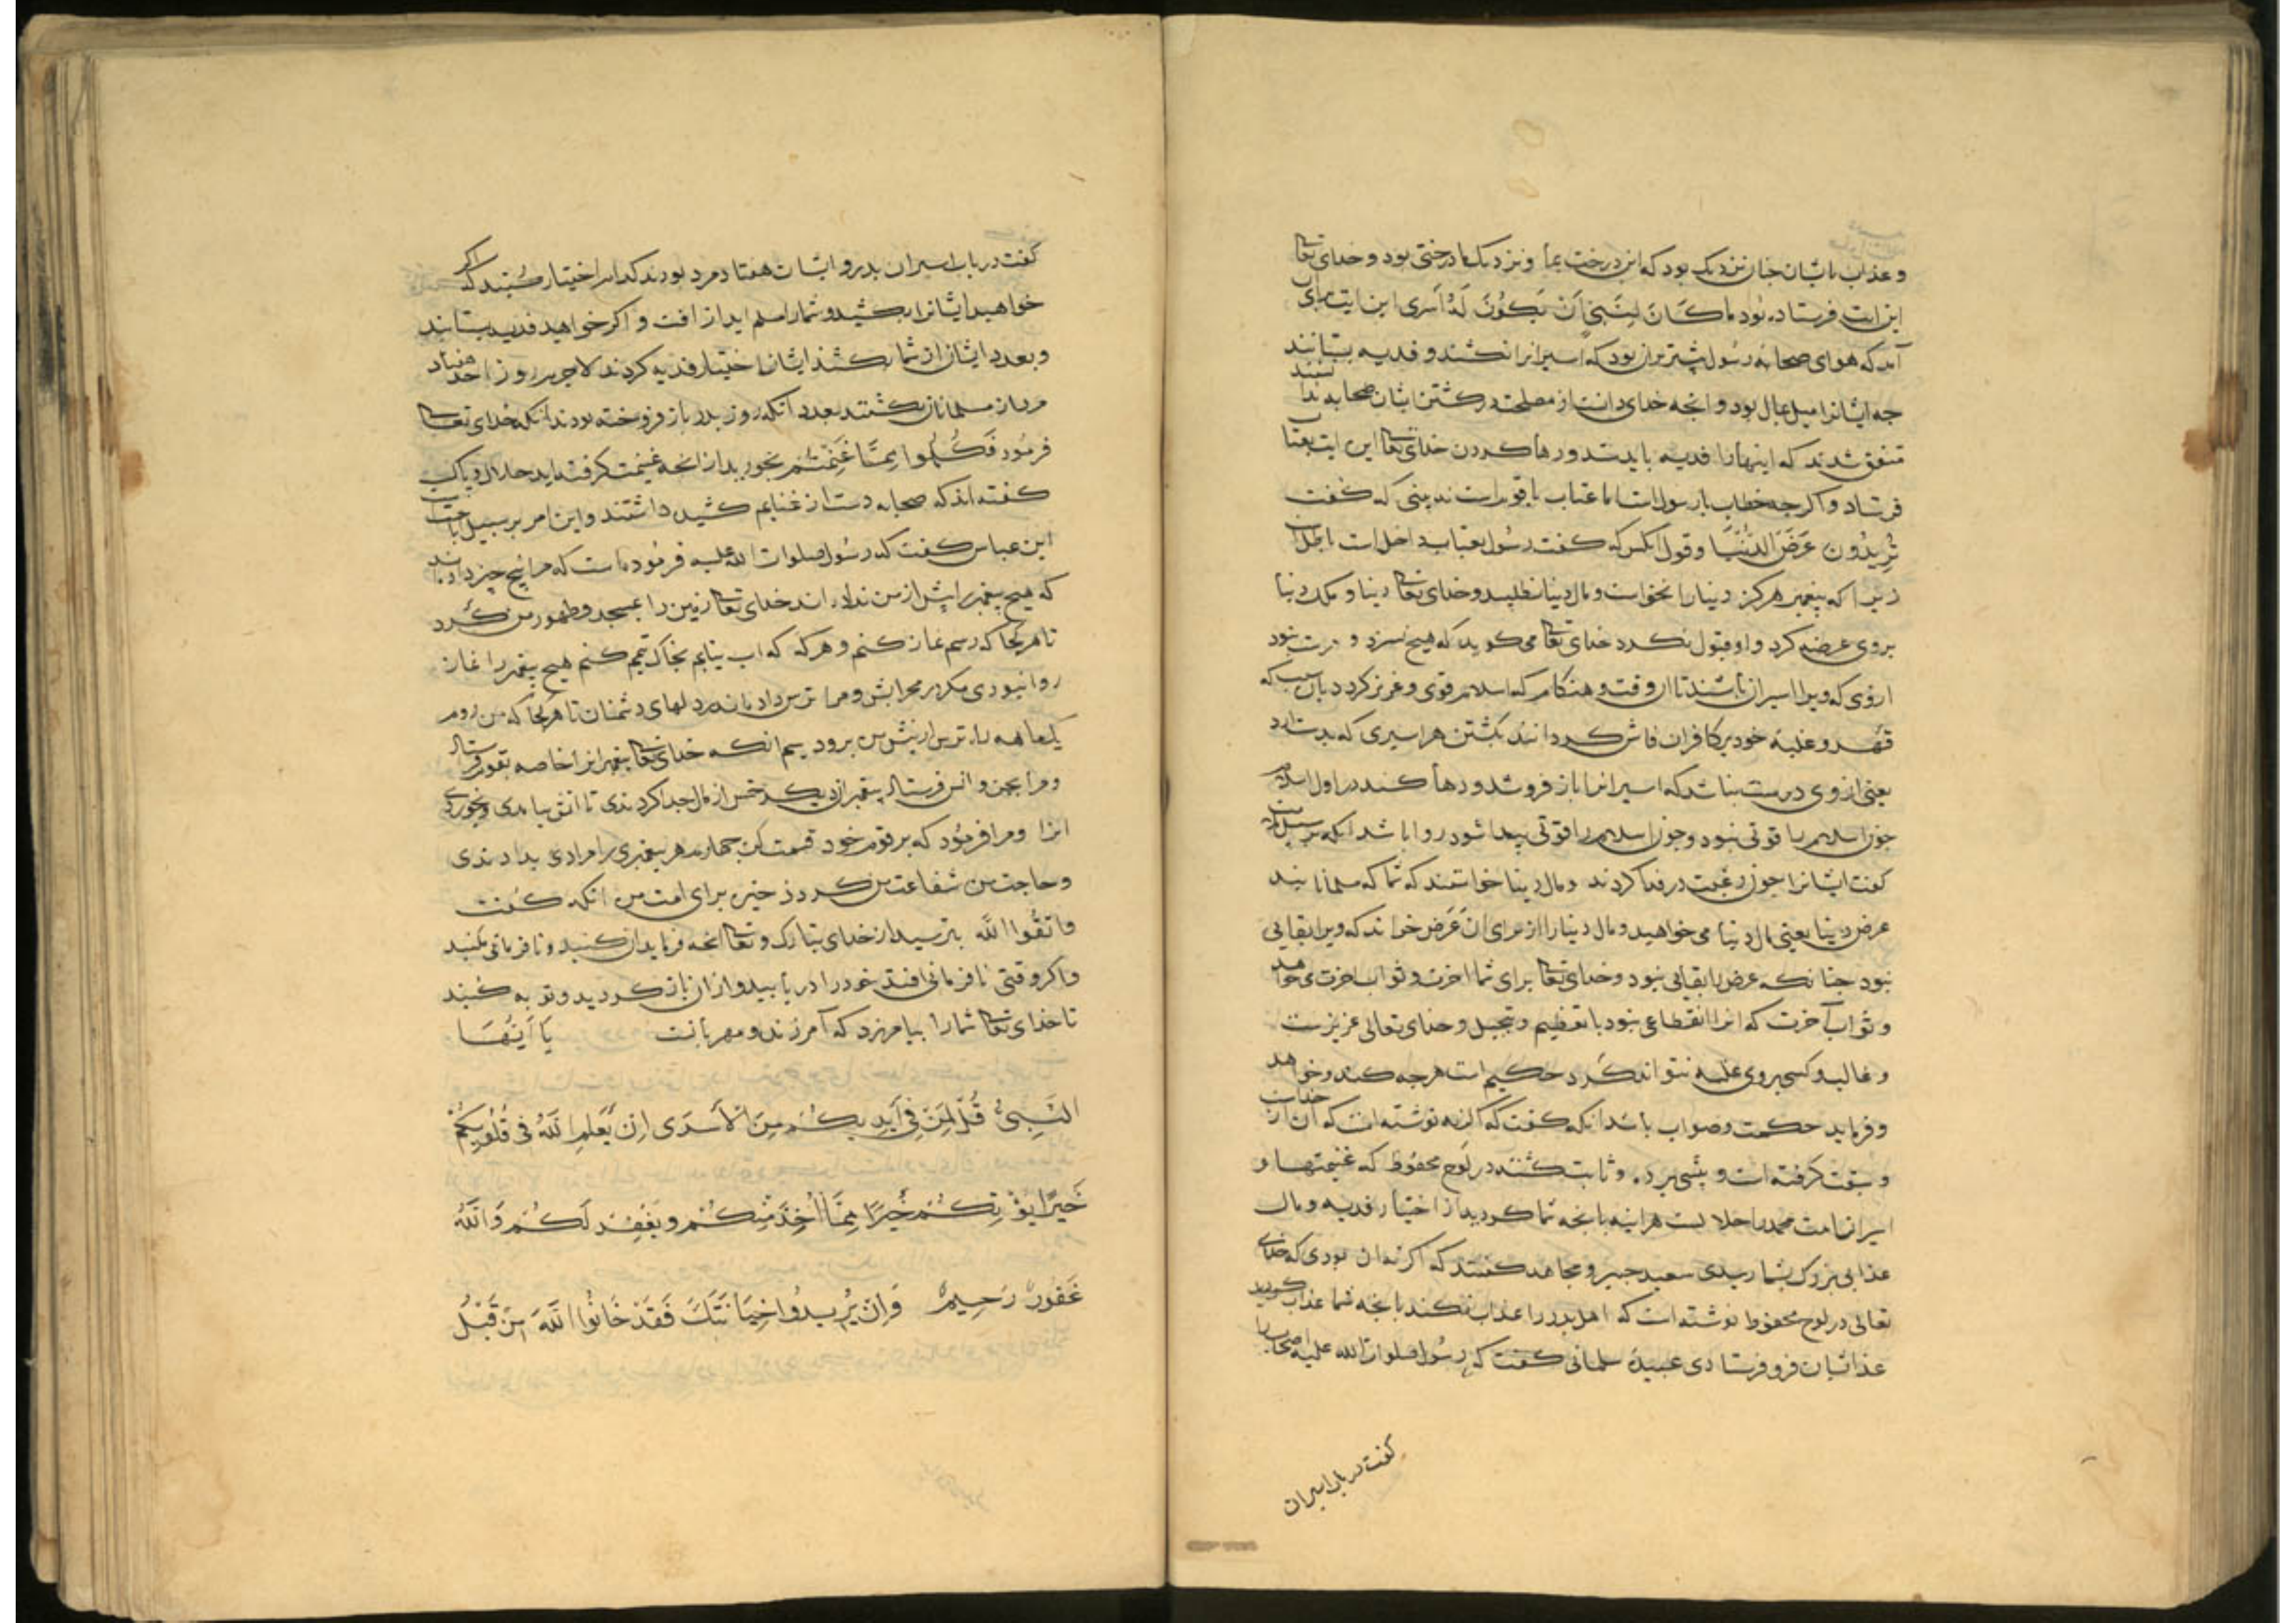 و عذاب بایشان جنان نزدیک بود که این درخت بما و نزدیک ما درختی بود و خدای تعا
این ایت فرستاده بود ما کَانَ لِنَبِیٍّ اَنْ یَکُونَ لَهُ اَسْری این ایت برای آن
آمد که هوای صحابه رسول بیشتر بران بود که اسیرانرا نکشند و فدیه بستانند
جه ایشانرا میل بمال بود و انجه خدای دانست از مصلحت در کشتن ایشان صحابه ندانستند
متفق شدند که اینها را فدیه باید ستد و رها کردن خدای تعا این ایت بعتاب
فرستاد و اکرجه خطاب با رسول است اما عتاب با قوم است نه بینی که کفت
تُرِیدُونَ عَرَضَ الدُّنْیَا و قول آنکس که کفت رسول بعتاب داخل است باطل است
زیرا که پیغمبر هرکز دینا را نخواست و مال دینا نطلبید و خدای تعا دینا و ملک دینا
بروی عرضه کرد و او قبول نکرد خدای تعا می کوید که هیج نسزد و درست نبود
از وی که ویرا اسیران باشند تا ان وقت و هنکام که اسلام قوی و عزیز کردد بان سبب که
قهر و غلبه خود بر کافران فاش کرداند بکشتن هر اسیری که بدست ارد
یعنی از وی درست نباشد که اسیرانرا باز فروشد و رها کند در اول اسلام
جون اسلام را قوتی نبود و جون اسلام را قوتی پیدا شود روا باشد انکه بر سبیل
کفت ایشانرا جون رغبت در فدا کردند و مال دینا خواستند که شما که مسلمانانید
عرض دینا یعنی مال دینا می خواهید و مال دینا را از برای ان عَرَض خواند که ویرا بقایی
نبود جنانکه عرض را بقایی نبود و خدای تعا برای شما اخرت و ثواب اخرت می خواهد
و ثواب آخرت که انرا انقطاعی نبود با تعظیم و تبجیل و خدای تعالی عزیزست
و غالب و کسی بروی غلبه نتواند کرد حکیم است هرجه کند و خواهد
و فرماید حکمت و صواب باشد انکه کفت که اکر نه نوشته است که آن از خداست
و سبقت کرفته است و پیشی برده و ثابت کشته در لوح محفوظ که غنیمتها و
اسیران امت محمد را حلالست هراینه بانجه شما کردید از اختیار فدیه و مال
عذابی بزرک بشما رسیدی سعید جبیر و مجاهد کفتند که اکر نه ان بودی که خدای
تعالی در لوح محفوظ نوشته است که اهل بدر را عذاب نکند بانجه شما کردید عذاب
عذابشان فرو فرستادی عبیده سلمانی کفت که رسول صلوات الله علیه اصحاب را
کفت در باب اسیران
کفت در باب اسیران بدر و ایشان هفتاد مرد بودند کدام را اختیار کنید که اکر
خواهید ایشانرا بکشید و شما را سلم اید از افت و اکر خواهید فدیه بستانید
و بعدد ایشان از شما بکشند ایشان اختیار فدیه کردند لاجرم روز احد هفتاد
مرد از مسلمانان بکشتند بعدد آنکه روز بدر باز فروخته بودند انکه خدای تعا
فرمود فَکُلُوا مِمَّا غَنِمْتُم بخورید از انجه غنیمت کرفته اید حلال و پاک
کفته اند که صحابه دست از غنایم کشیده داشتند و این امر بر سبیل اباحت
ابن عباس کفت که رسول صلوات الله علیه فرموده است که مرا پنج جیز داده اند
که هیج پیغمبر را پیش از من نداده اند خدای تعا زمین را مسجد و طهور من کرد
تا هر کجا که رسم نماز کنم و هرکه که اب نیابم بخاک تیمم کنم هیج پیغمبر را نماز
روا نبودی مکر در محرابش و مرا ترس داده اند در دلهای دشمنان تا هر کجا که من روم
یکماهه راه ترس از پیش من برود سیم انکه خدای تعا پیغمبرانرا خاصه بقوم فرستاد
و مرا بجن و انس فرستاد پیغمبران دیکر خمس از مال جدا کردندی تا اتش بیامدی و بخوردی
انرا و مرا فرمود که بر قوم خود قسمت کن جهارم هر پیغمبری را مرادی بدادندی
و حاجت من شفاعت من کرد ذخیره برای امت من انکه کفت
وَاتَّقُوا اللَّه بترسید از خدای تبارک و تعا انجه فرماید ان کنید و نافرمانی مکنید
و اکر وقتی نافرمانی افتد خود را دریابید و از ان باز کردید و توبه کنید
تا خدای تعا شما را بیامرزد که آمرزنده و مهربانست یَا اَیُّهَا
النَّبِیُّ قُلْ لِمَنْ فِی اَیْدِیکُمْ مِنَ الْاَسْرَی اِنْ یَعْلَمِ اللَّهُ فِی قُلُوبِکُمْ
خَیْرًا یُؤْتِکُمْ خَیْرًا مِمَّا اُخِذَ مِنْکُمْ وَیَغْفِرْ لَکُمْ وَاللَّهُ
غَفُورٌ رَحِیمٌ وَاِنْ یُرِیدُوا خِیَانَتَکَ فَقَدْ خَانُوا اللَّهَ مِنْ قَبْلُ